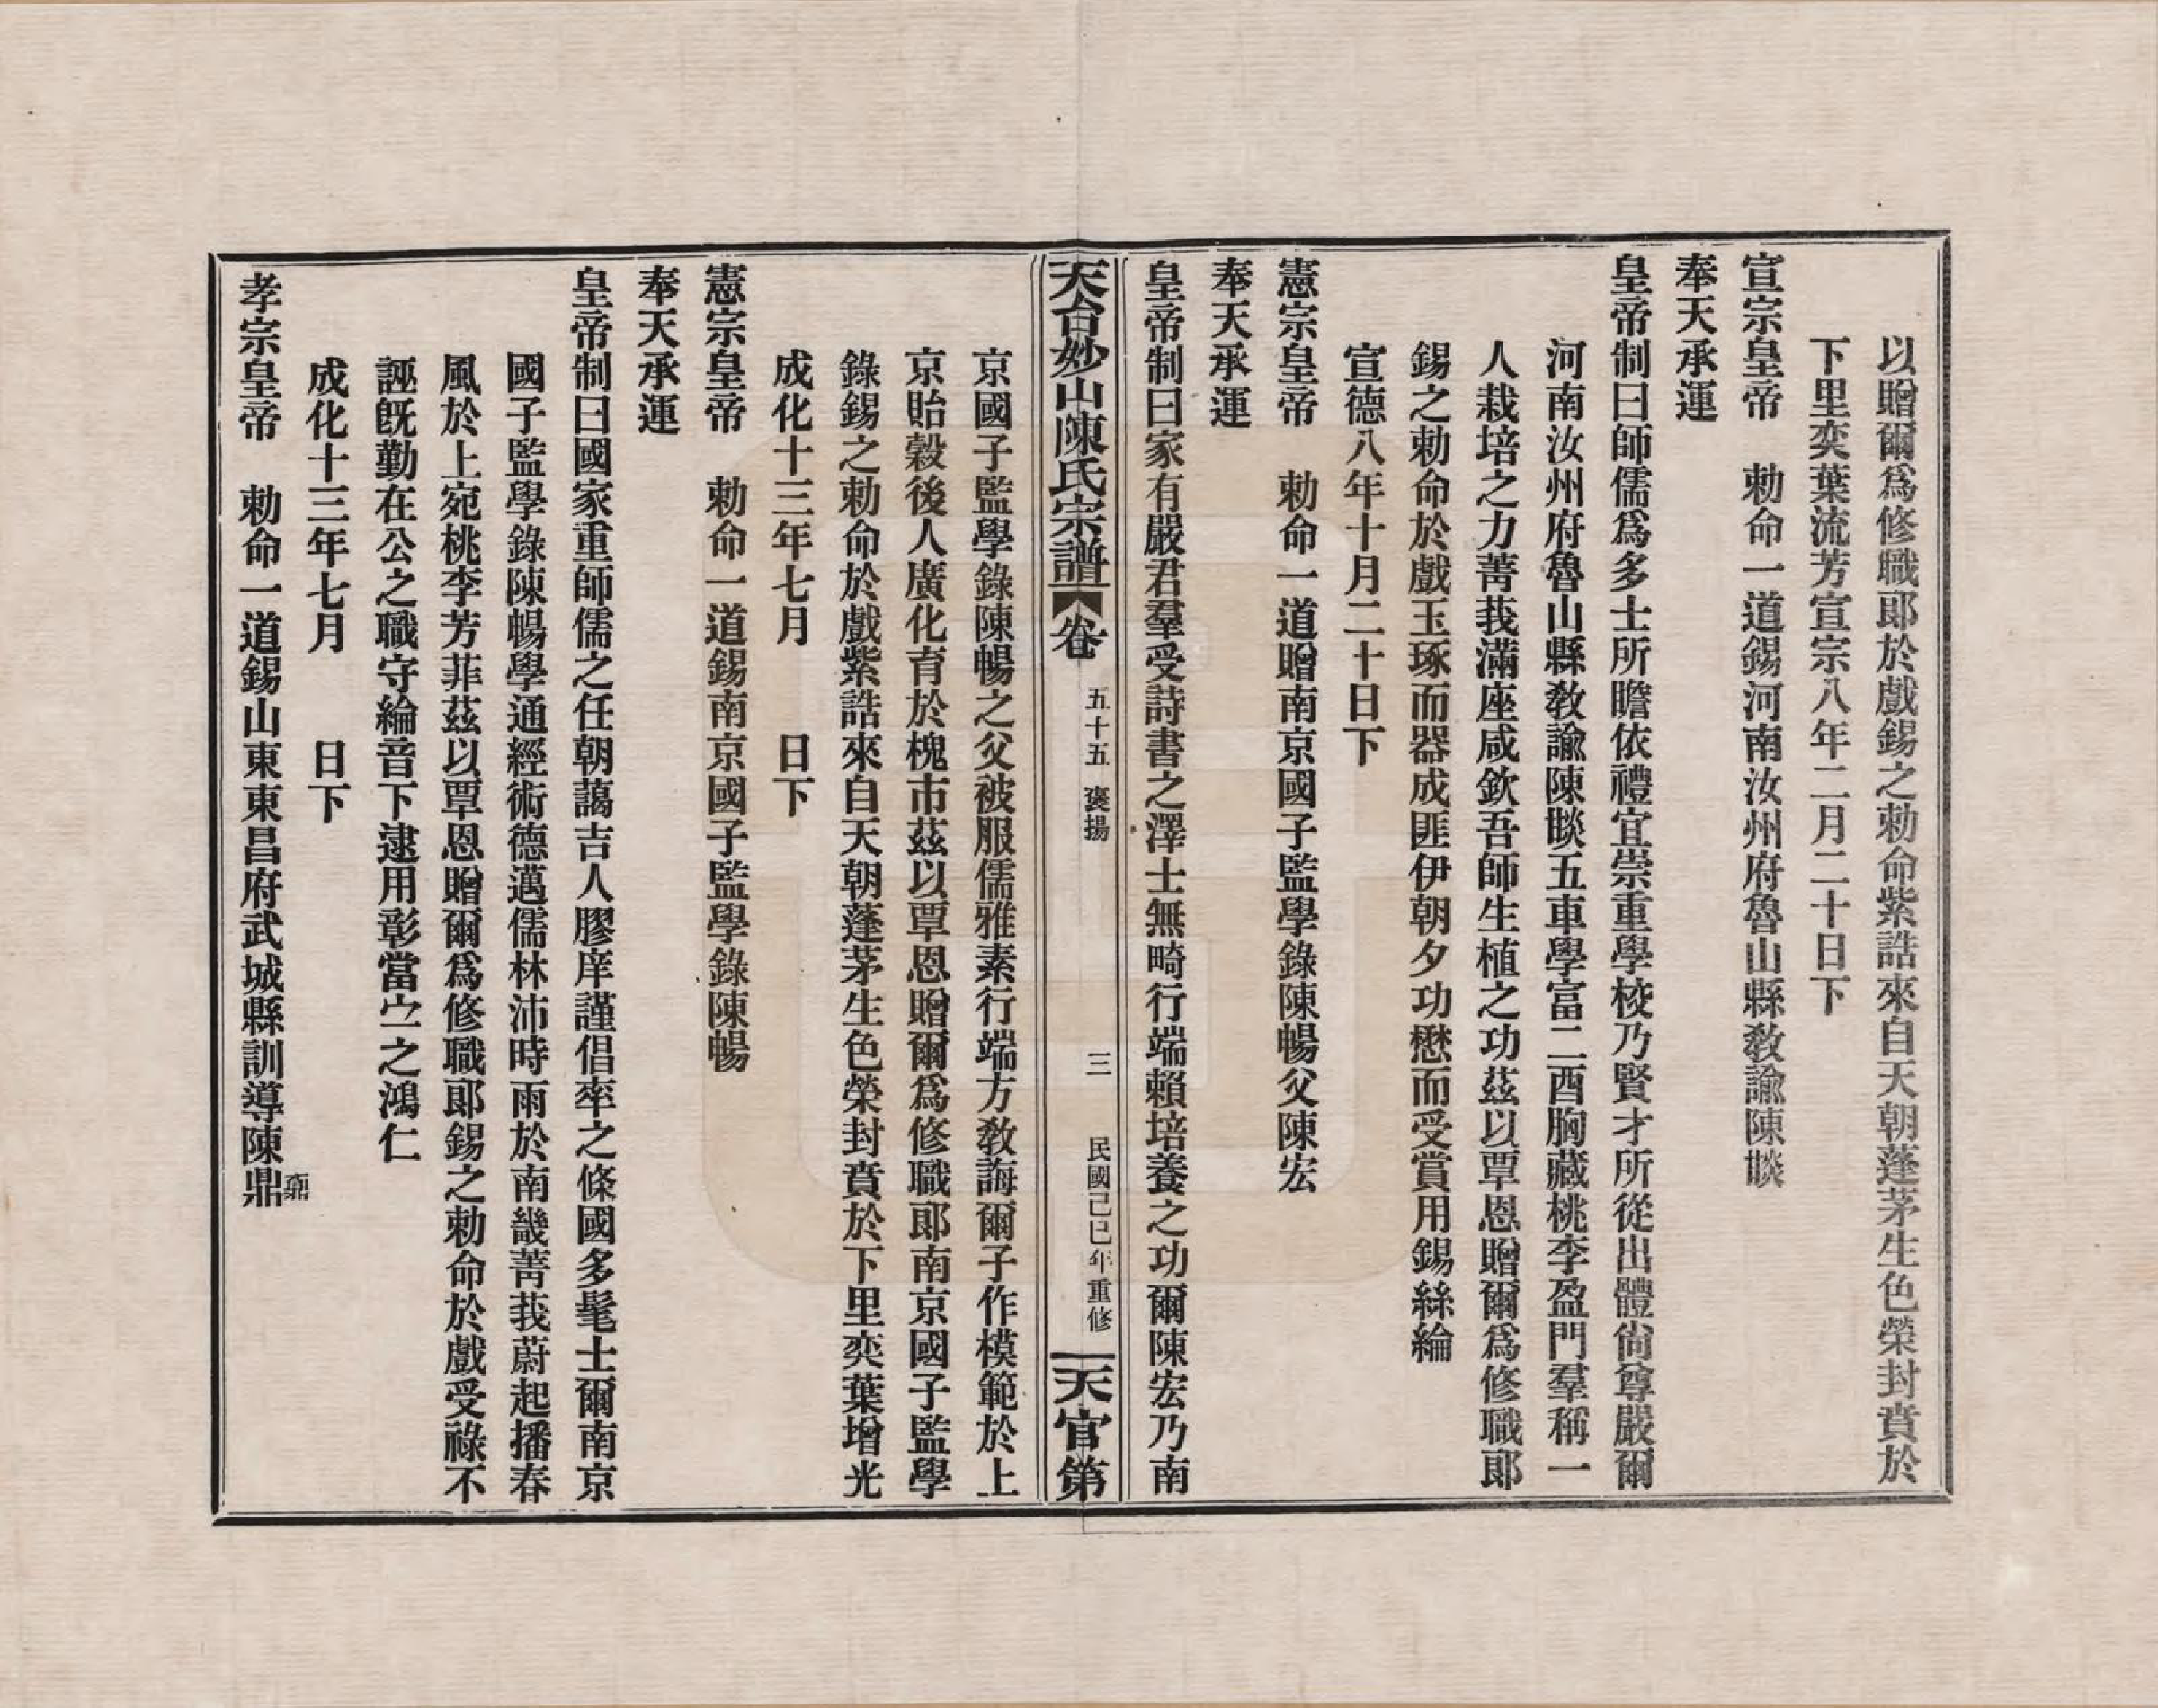 以贈爾爲修職郎於戲錫之勅命紫誥來自天朝蓬茅生色榮封賁於
下里奕葉流芳宣宗八年二月二十日下
宣宗皇帝　勅命一道錫河南汝州府魯山縣教諭陳睒
奉天承運
皇帝制曰師儒爲多士所瞻依禮宜崇重學校乃賢才所從出體尙尊嚴爾
河南汝州府魯山縣教諭陳睒五車學富二酉胸藏桃李盈門羣稱一
人栽培之力菁莪滿座咸欽吾師生植之功茲以覃恩贈爾爲修職郎
錫之勅命於戲玉琢而器成匪伊朝夕功懋而受賞用錫絲綸
宣德八年十月二十日下
憲宗皇帝　勅命一道贈南京國子監學錄陳暢父陳宏
奉天承運
皇帝制曰家有嚴君羣受詩書之澤士無畸行端賴培養之功爾陳宏乃南
天台妙山陳氏宗譜　卷　五十五　褒揚　三　民國己巳年重修　天官第
京國子監學錄陳暢之父被服儒雅素行端方教誨爾子作模範於上
京貽穀後人廣化育於槐市茲以覃恩贈爾爲修職郎南京國子監學
錄錫之勅命於戲紫誥來自天朝蓬茅生色榮封賁於下里奕葉增光
成化十三年七月　　日下
憲宗皇帝　勅命一道錫南京國子監學錄陳暢
奉天承運
皇帝制曰國家重師儒之任朝藹吉人膠庠謹倡率之條國多髦士爾南京
國子監學錄陳暢學通經術德邁儒林沛時雨於南畿菁莪蔚起播春
風於上宛桃李芳菲茲以覃恩贈爾爲修職郎錫之勅命於戲受祿不
誣旣勤在公之職守綸音下逮用彰當宁之鴻仁
成化十三年七月　　日下
孝宗皇帝　勅命一道錫山東東昌府武城縣訓導陳鼎